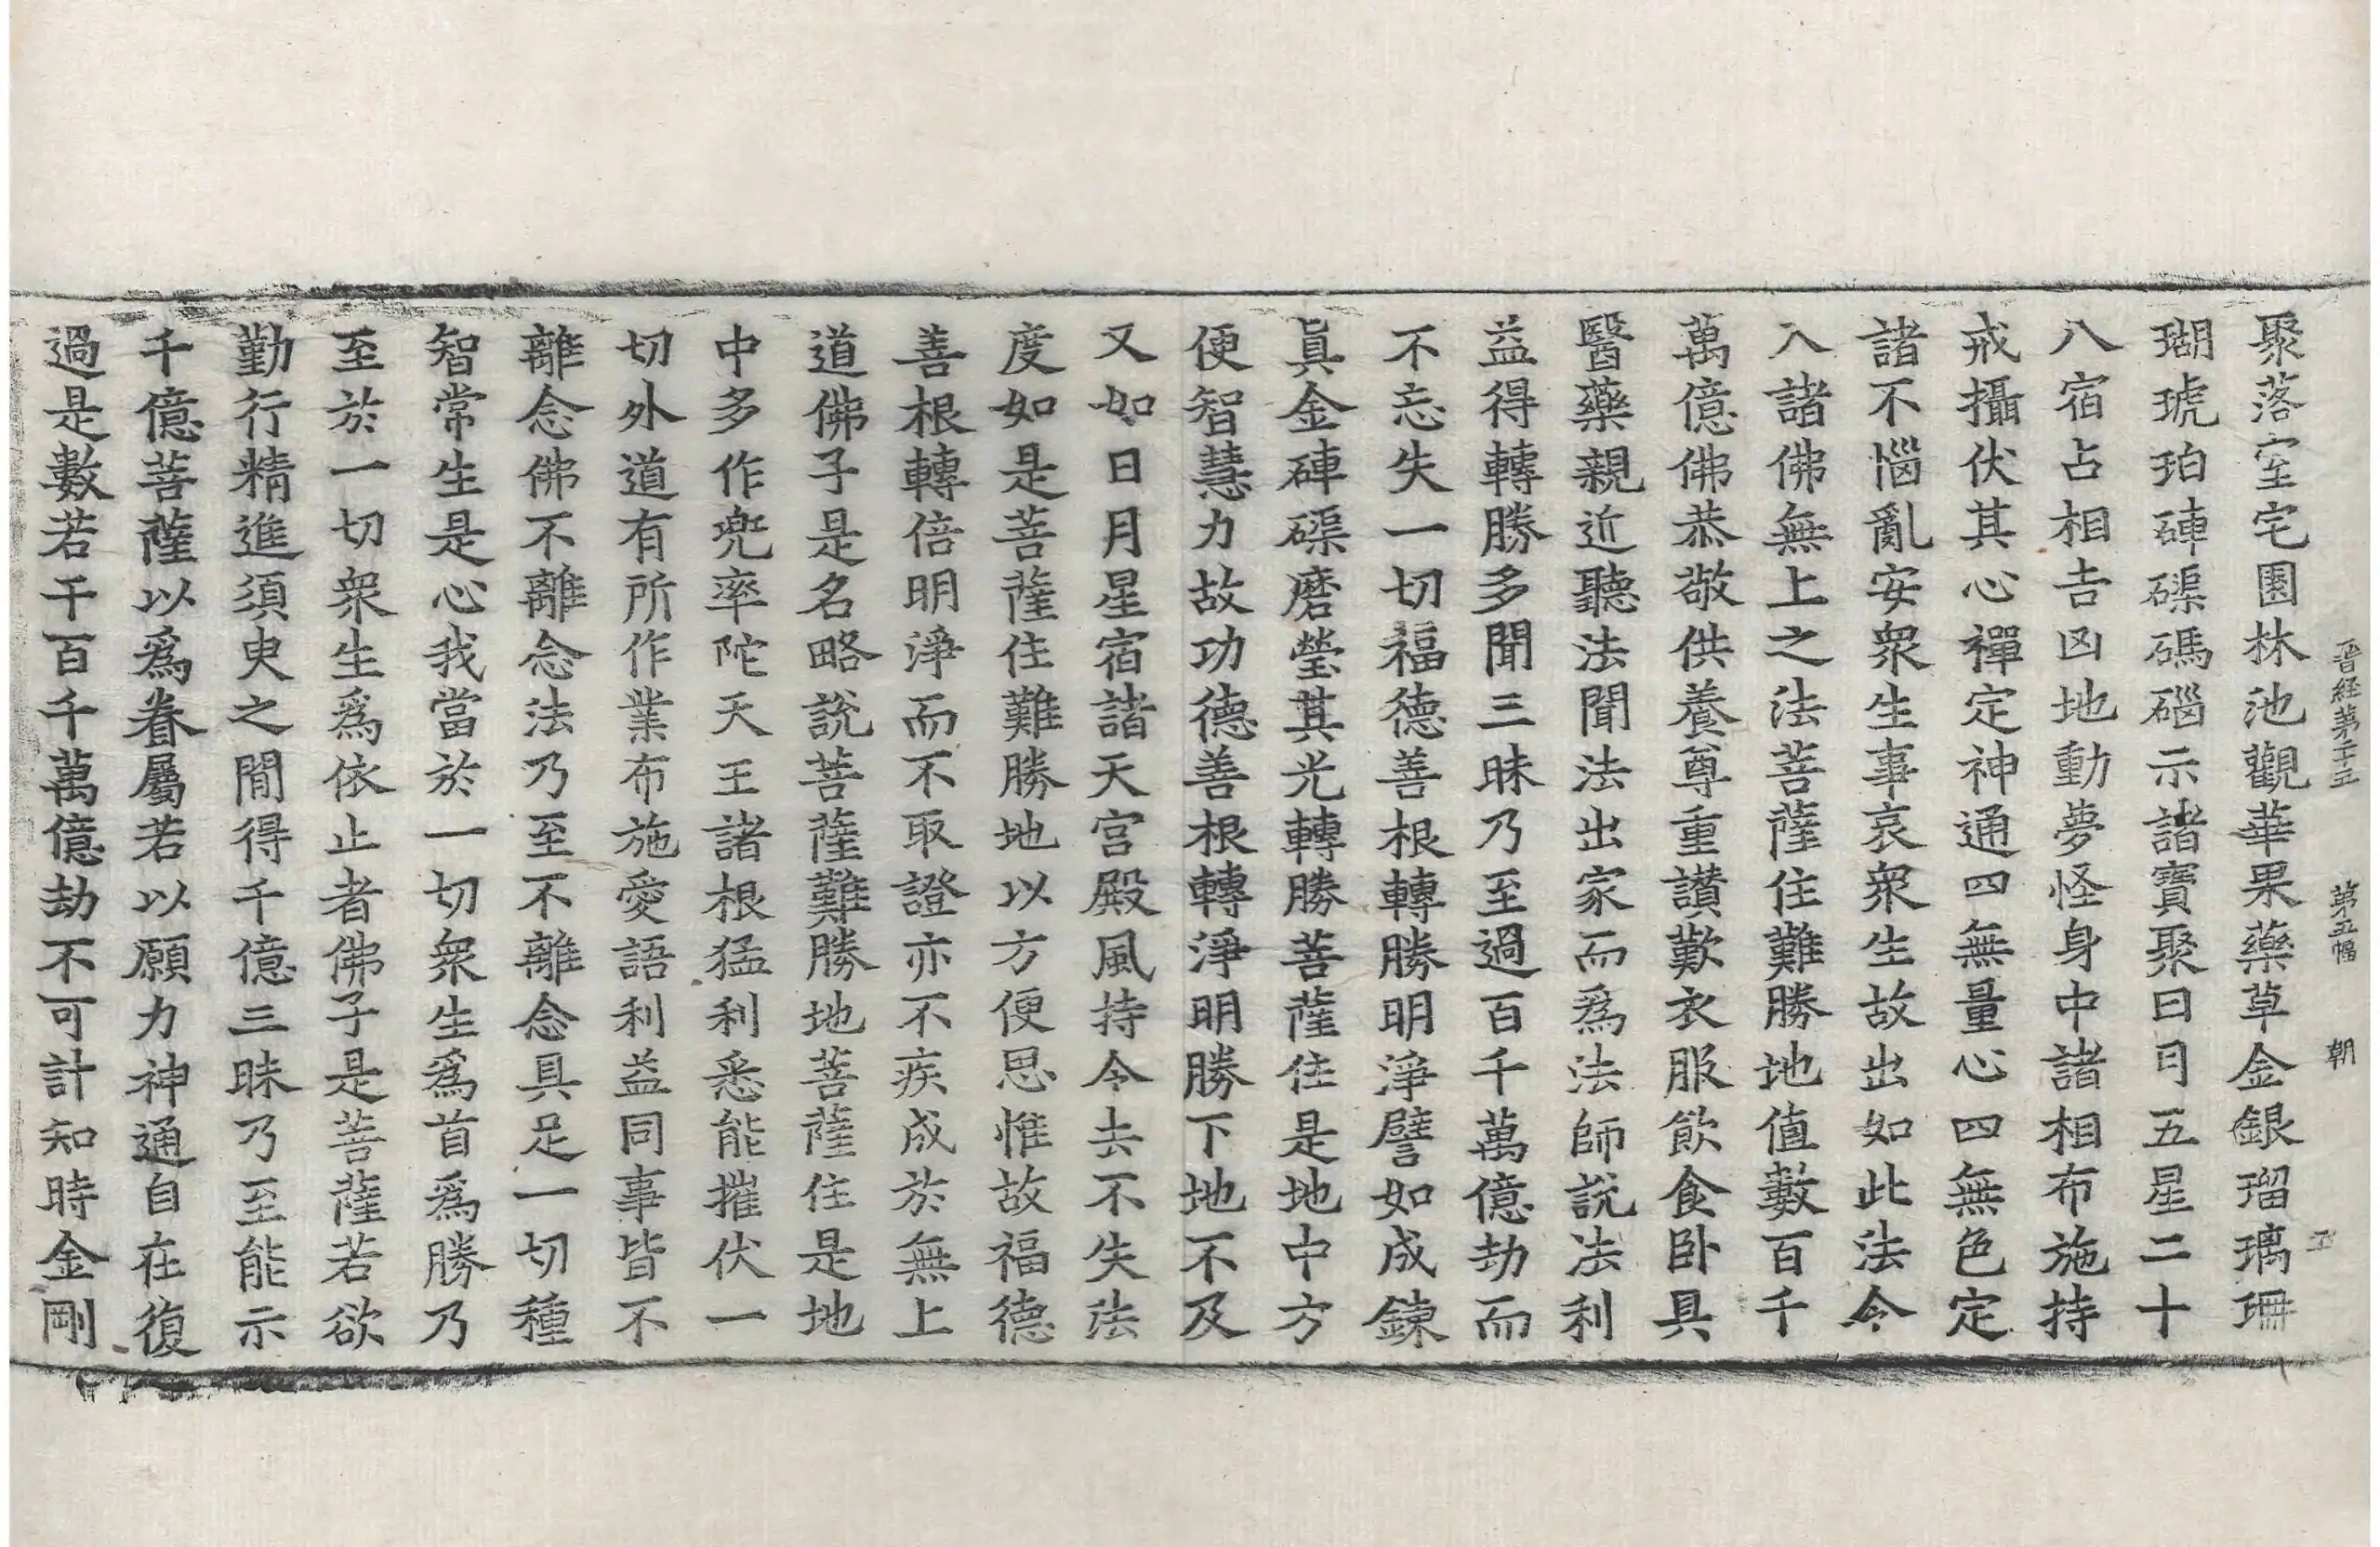 晋経第二十五　第五幅　朝
聚落室宅園林池觀華果藥草金銀瑠璃珊
瑚琥珀硨磲碼碯示諸寶聚日月五星二十
八宿占相吉凶地動夢怪身中諸相布施持
戒攝伏其心禪定神通四無量心四無色定
諸不惱亂安衆生事哀衆生故出如此法令
入諸佛無上之法菩薩住難勝地值數百千
萬億佛恭敬供養尊重讃歎衣服飲食卧具
醫藥親近聽法聞法出家而爲法師說法利
益得轉勝多聞三昧乃至過百千萬億劫而
不忘失一切福德善根轉勝明淨譬如成鍊
眞金硨磲磨瑩其光轉勝菩薩住是地中方
便智慧力故功德善根轉淨明勝下地不及
又如日月星宿諸天宮殿風持令去不失法
度如是菩薩住難勝地以方便思惟故福德
善根轉倍明淨而不取證亦不疾成於無上
道佛子是名略說菩薩難勝地菩薩住是地
中多作兜率陀天王諸根猛利悉能摧伏一
切外道有所作業布施愛語利益同事皆不
離念佛不離念法乃至不離念具足一切種
智常生是心我當於一切衆生爲首爲勝乃
至於一切衆生爲依止者佛子是菩薩若欲
勤行精進須臾之間得千億三昧乃至能示
千億菩薩以爲眷屬若以願力神通自在復
過是數若干百千萬億劫不可計知時金剛